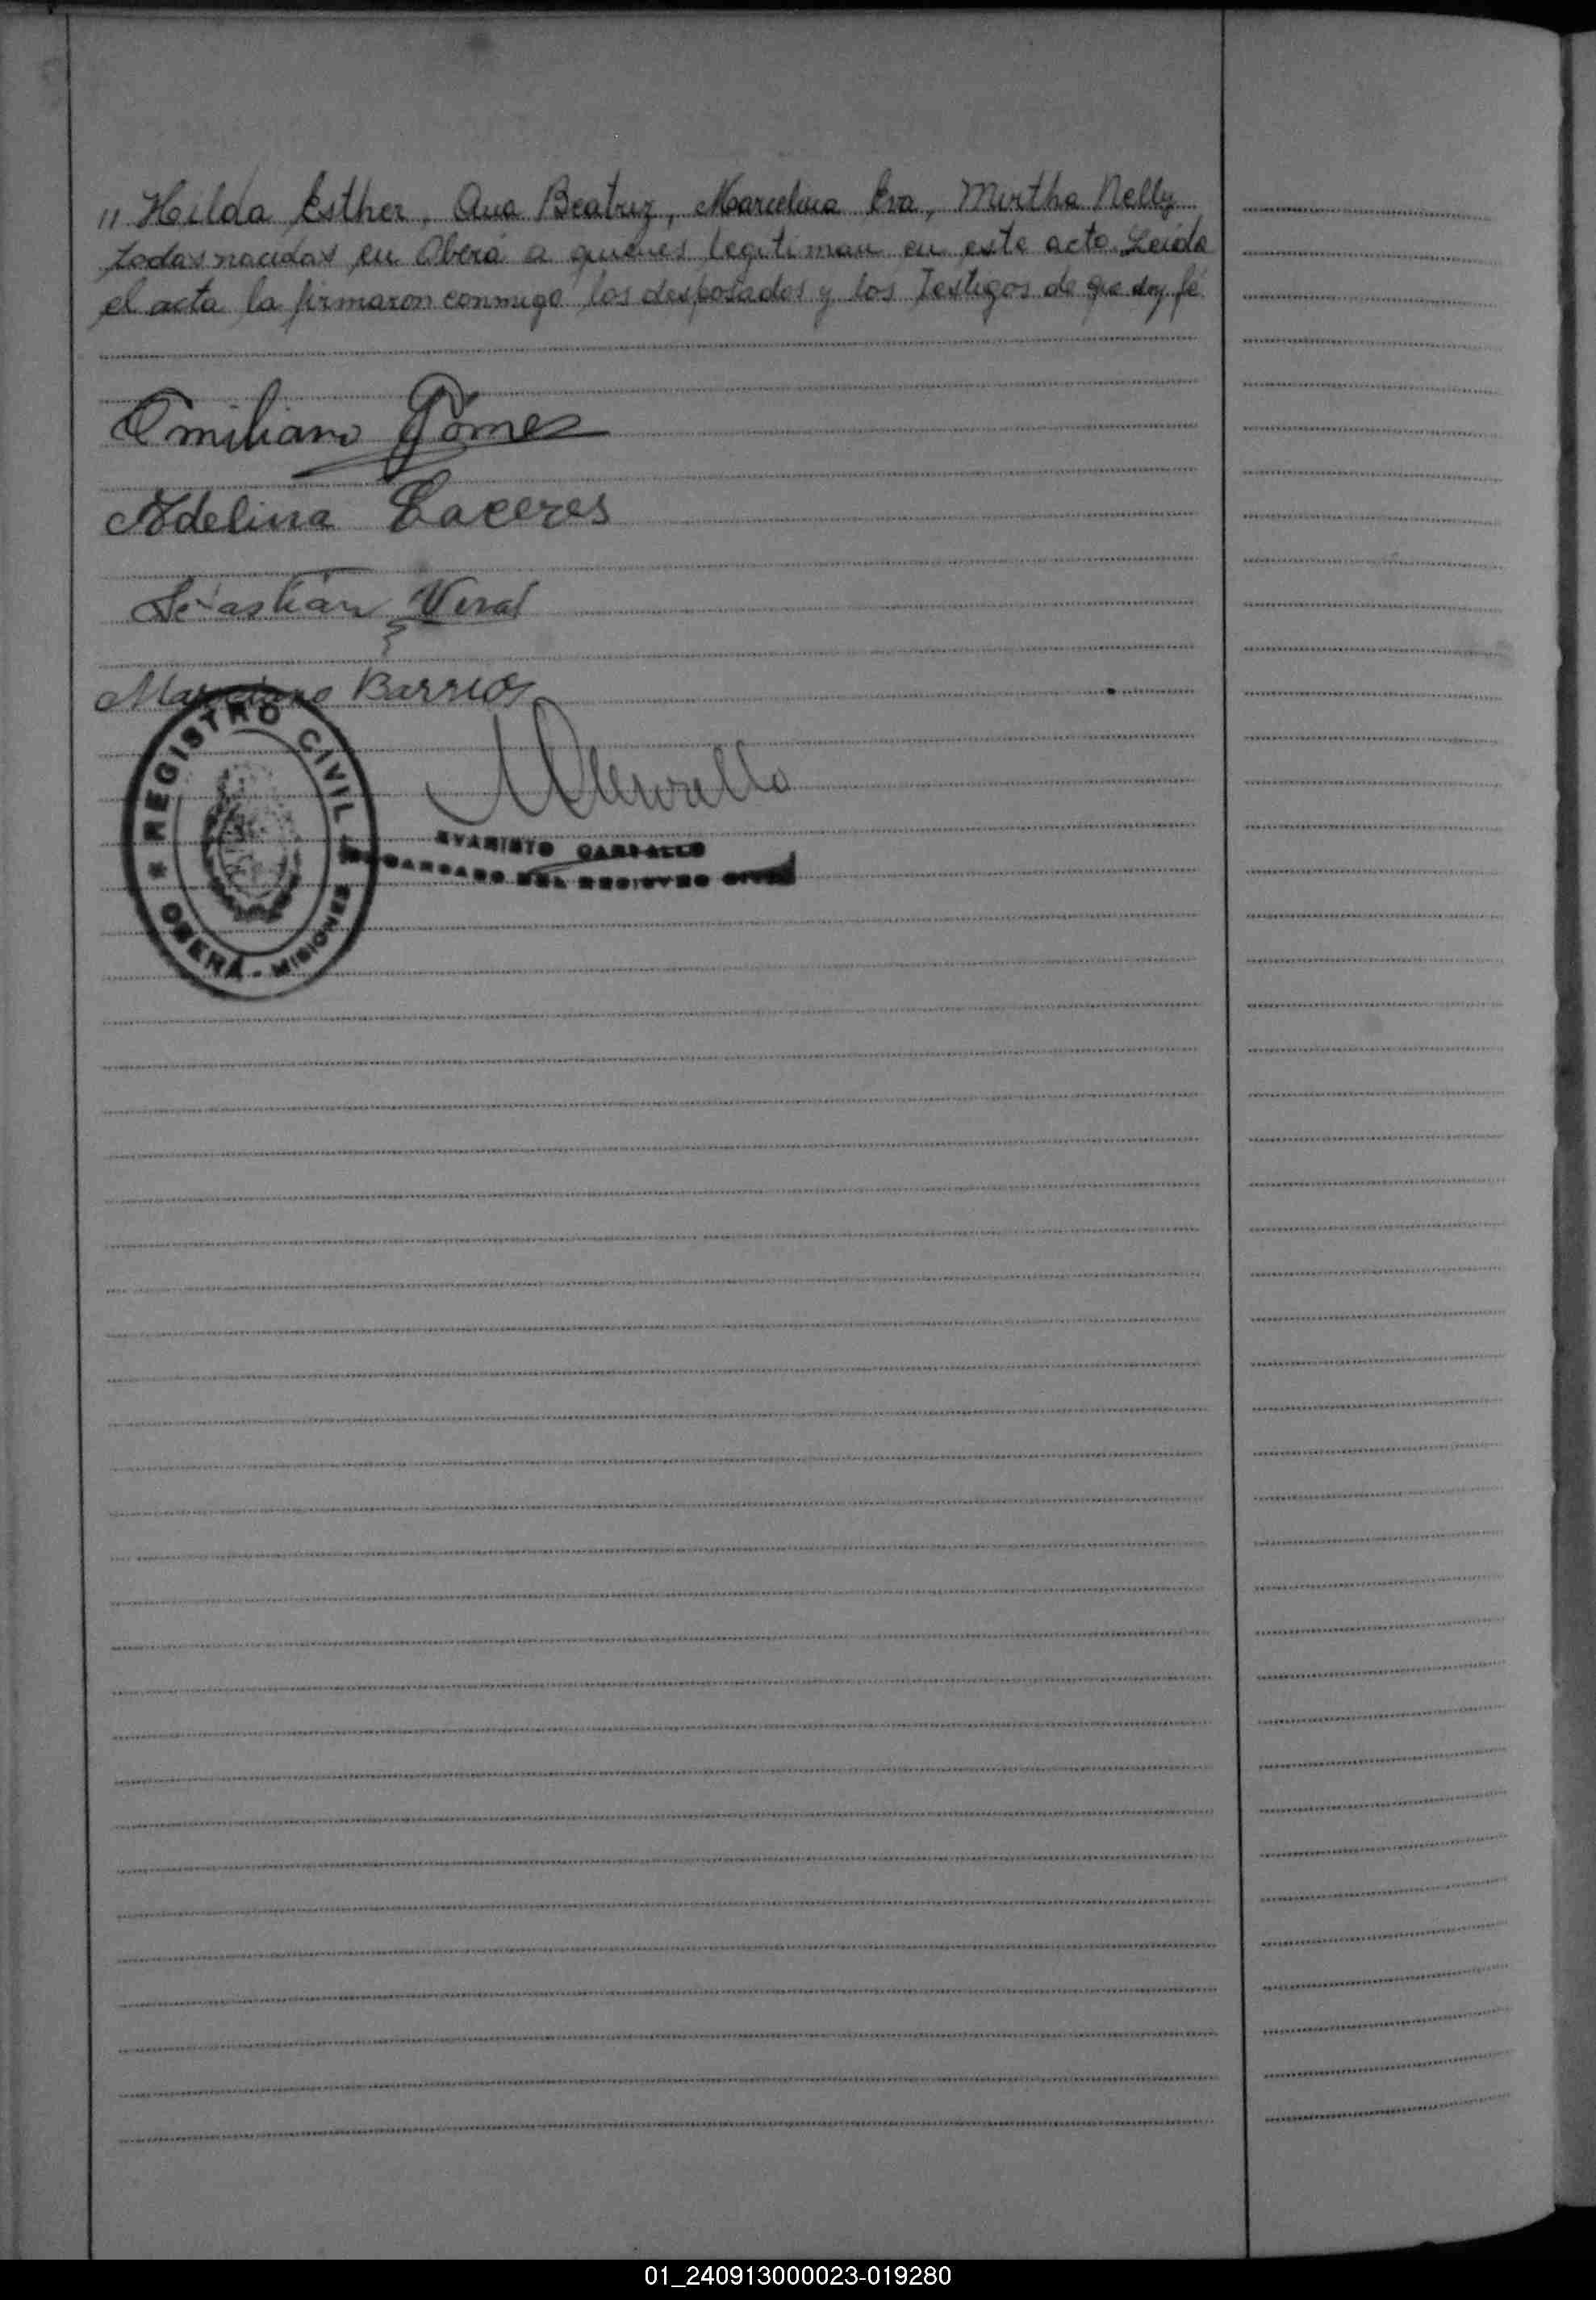 " Hilda Esther, Ana Beatriz, Marcelina Eva, Mirtha Nelly
todas nacidas en Oberá a quienes legitiman en este acto. Leída
el acta la firmaron conmigo los desposados y los Testigos de que doy fé.
Emiliano Gómez
Adelina Caceres
Sebastián Veral
Marciano Barrios
REGISTRO CIVIL
OBERÁ - MISIONES
EVARISTO CARBALLO
ENCARGADO DEL REGISTRO CIVIL
01_240913000023-019280